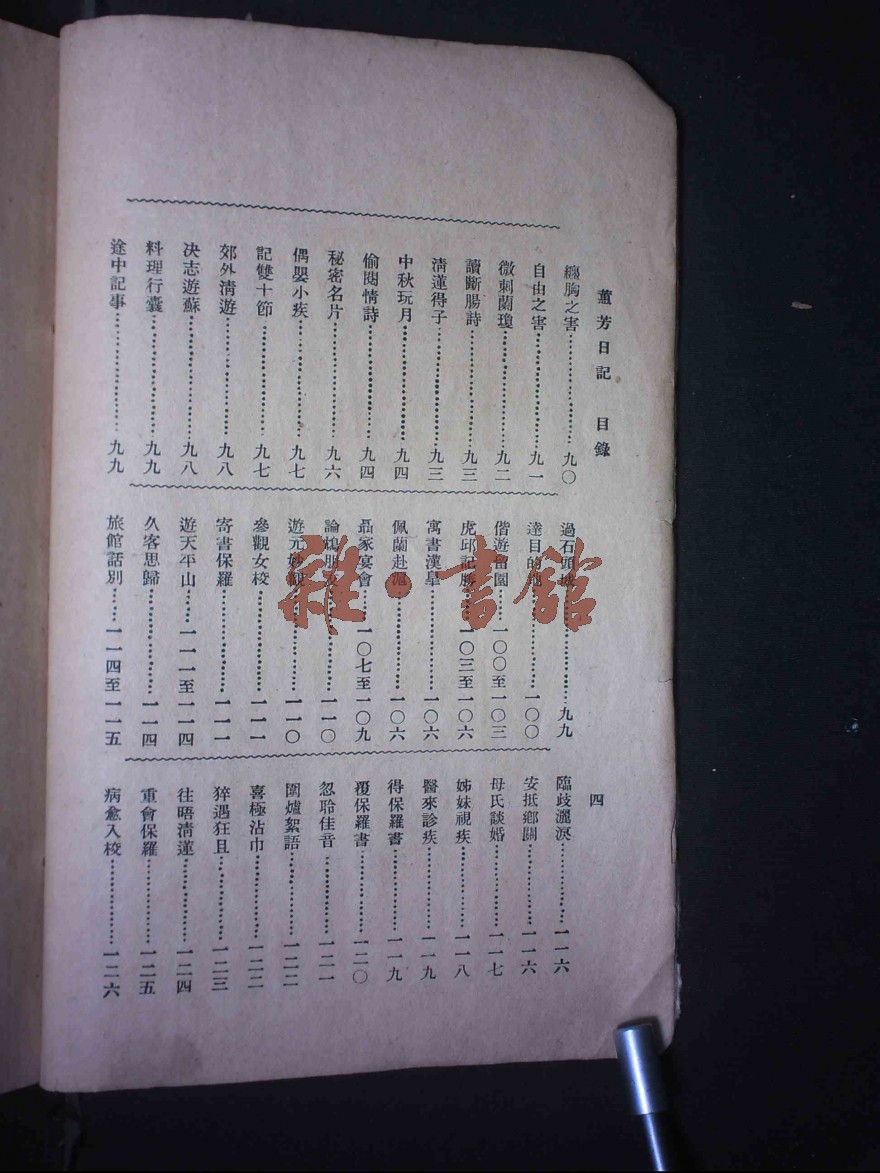 蕙芳日記　目錄　四
纏胸之害…………九〇
自由之害…………九一
微刺蘭瓊…………九二
讀斷腸詩…………九三
清蓮得子…………九三
中秋玩月…………九四
偷閱情詩…………九四
秘密名片…………九六
偶嬰小疾…………九七
記雙十節…………九七
郊外清遊…………九八
决志遊蘇…………九八
料理行囊…………九九
途中記事…………九九
過石頭城…………九九
達目的地…………一〇〇
偕遊留園……一〇〇至一〇三
虎邱記勝……一〇三至一〇六
寓書漢皐…………一〇六
佩蘭赴滬…………一〇六
聶家宴會……一〇七至一〇九
論 朋友…………一一〇
遊元妙觀…………一一〇
參觀女校…………一一一
寄書保羅…………一一一
遊天平山……一一一至一一四
久客思歸…………一一四
旅館話別……一一四至一一五
臨歧灑淚…………一一六
安抵鄉關…………一一六
母氏談婚…………一一七
姊妹視疾…………一一八
醫來診疾…………一一九
得保羅書…………一一九
覆保羅書…………一二〇
忽聆佳音…………一二一
圍爐絮語…………一二二
喜極沾巾…………一二二
猝遇狂且…………一二三
往晤清蓮…………一二四
重會保羅…………一二五
病愈入校…………一二六
雜·書館